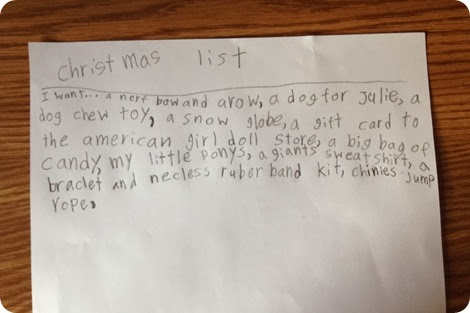 christmas list
I want... a nerf bow and arow, a dog for Julie, a
dog chew toy, a snow globe, a gift card to
the american girl doll store, a big bag of
candy, my little ponys, a giants sweatshirt, a
braclet and necless ruber band kit, chinies jump
rope.